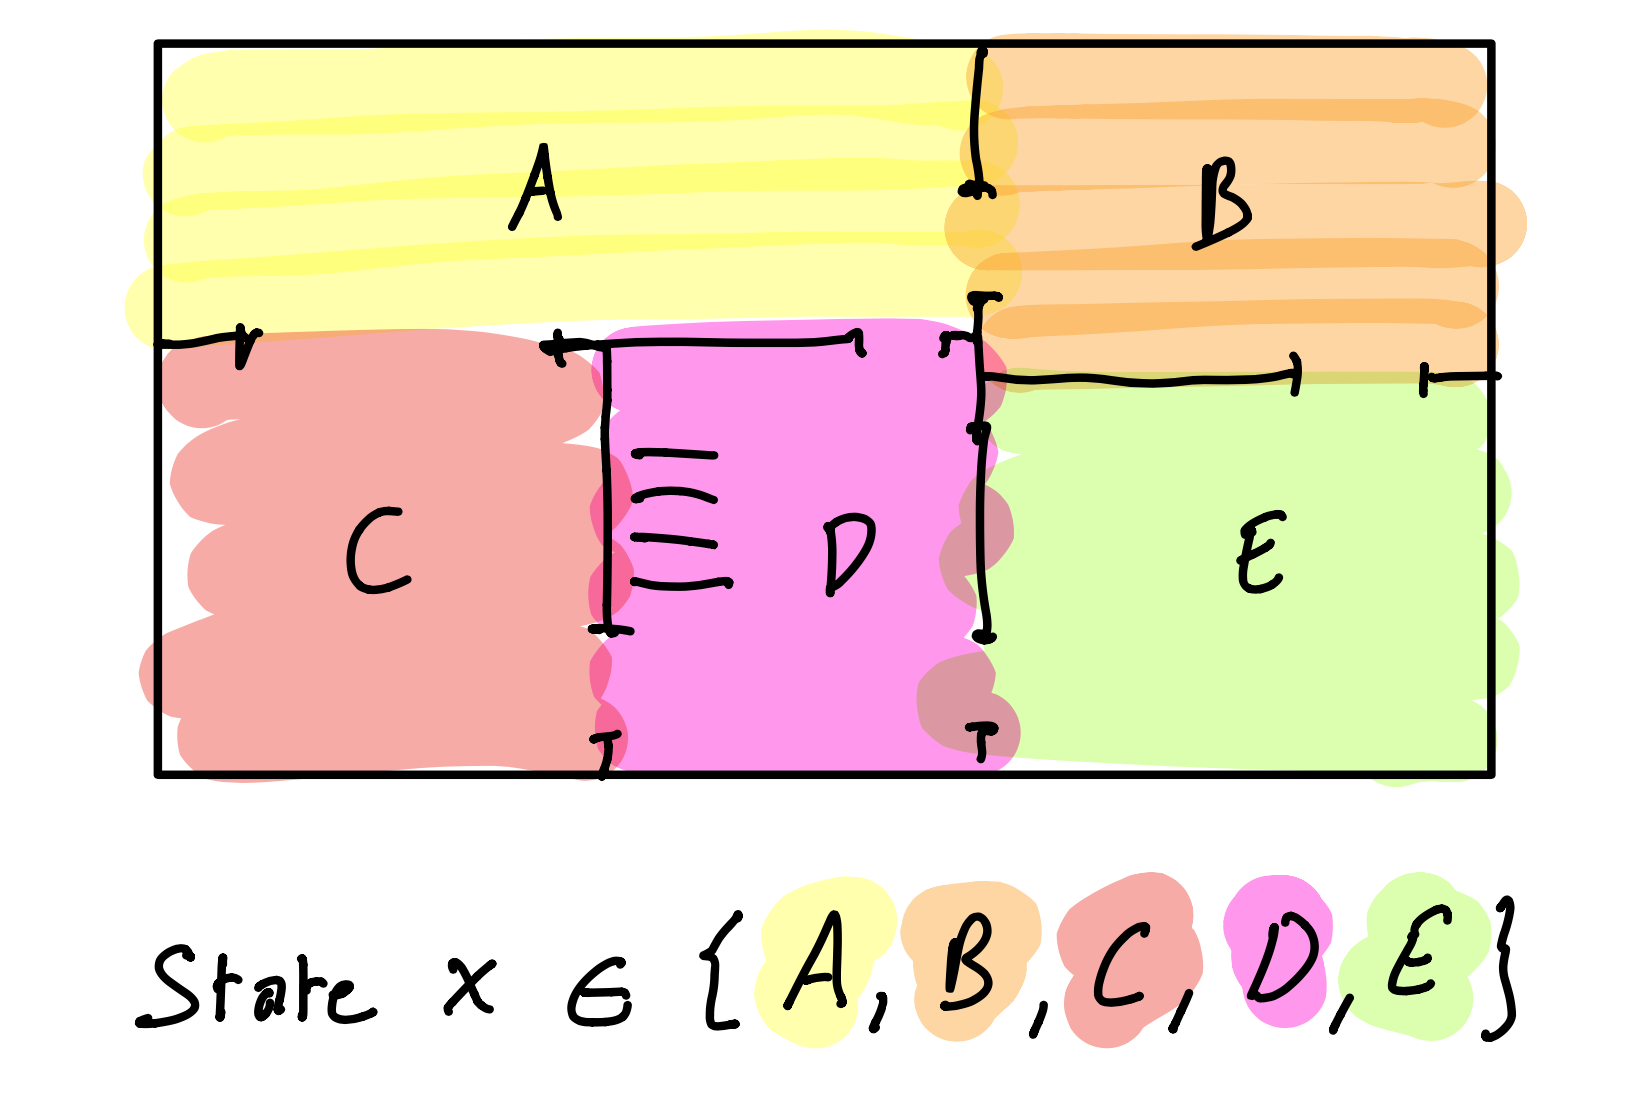 A
B
C
D
E
State x ∈ {A, B, C, D, E}